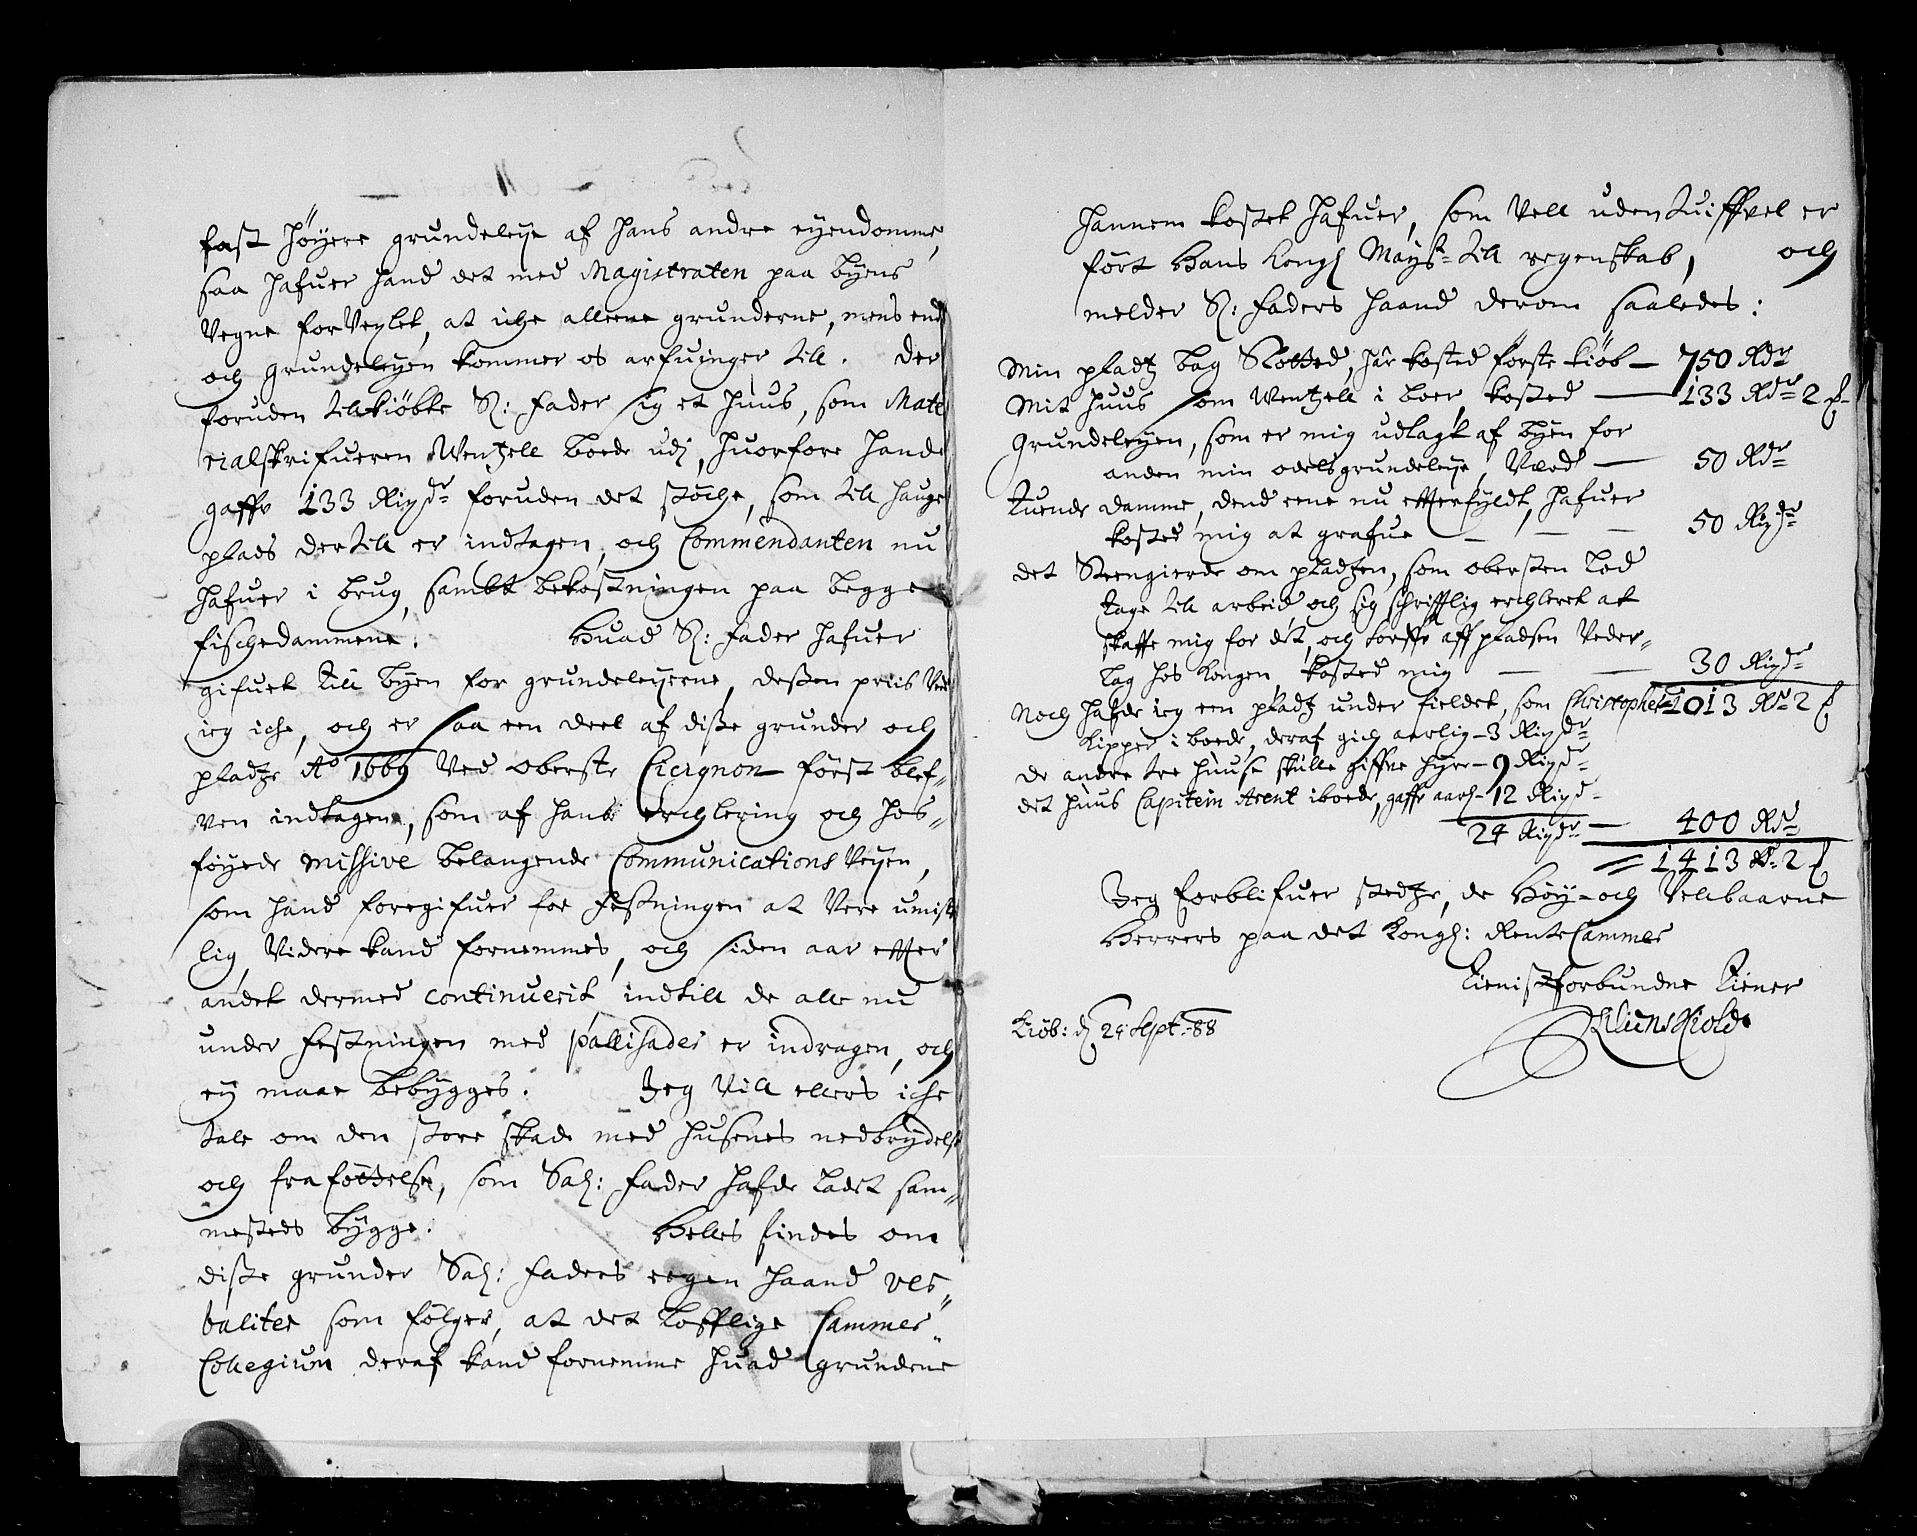 fast høyere grundeleye af hans andre eyendomme,
saa hafuer hand det med Magistraten paa byens
Vegne forVexlet, at iche alleene grunderne, mens end
och grundeleyen kommer os arfuinger till. Der
foruden tilkiøbte S: Fader sig et huus, som Mate
rialskrifueren Wentzell boede udj, huorfore hand
gaffe 133 Rixdr foruden det støche, som till hauge
plads dertill er indtagen, och Commendanten nu
hafuer i brug, sambt bekostningen paa begge
fischedammene. Huad S: Fader hafuer
gifuet till byen for grundeleyerne, dessen priis Ved
ieg iche, och er saa een deel af disse grunder och
pladtze Ao 1669 Ved oberste Ciergnon først blef-
ven indtagen, som af hans erchlering och hos-
føyede missive belangende Communications Veyen,
som hand foregifuer for festningen at Vere umist
lig, Videre kand fornemmes, och siden aar etter
andet dermed continuerit indtill de alle nu
under festningen med pallisader er indragen, och
ey maae bebygges. Jeg Vill ellers iche
tale om den store skade med husenes nedbrydelse
och fraføttelse, som Sal: Fader hafde ladet sam-
mesteds bygge. Helles findes om
disse grunder Sal: Faders eegen haand ver-
baliter som følger, at det loflige Cammer-
Collegium deraf kand fornemme huad grundene
hannem kostet hafuer, som Vell uden tuiffvel er
ført Hans Kongl Mayst till regenskab, och
melder S: Faders haand derom saaledes:
Min pladtz bag Slotted, har kosted første kiøb — 750 Rdr
Mit huus som Wentzell i boer, kosted — 133 Rdr 2 ₰
Grundeleyen, som er mig udlagt af byen for
anden min odelsgrundeleye, Verd — 50 Rdr
tuende damme, dend eene nu efterfyldt, hafuer
kosted mig at grafue — — — 50 Rixdr
det Steengierde om pladtzen, som obersten lod
tage till arbeid och sig schrifftlig erchleret at
skaffe mig for det, och torffue aff pladsen Veder-
lag hos Kongen, kosted mig — — 30 Rixdr
Noch hafde ieg een pladtz under fieldet, som Christopher 1013 Rdr 2 ₰
Kipper i boede, deraf gich aarlig - 3 Rixdr
de andre tre huuse skulle giffve hyre - 9 Rixdr
det huus Capitein Arent iboede, gaff aarl - 12 Rixdr
24 Rixdr — 400 Rdr
1413 Rdr 2 ₰
Jeg forblifuer stedtze, de Høy- och Velbaarne
Herrers paa det Kongl: RenteCammer
tienistforbundne tiener
Lilienskiold
Kiøb: d 24 Sept. -88